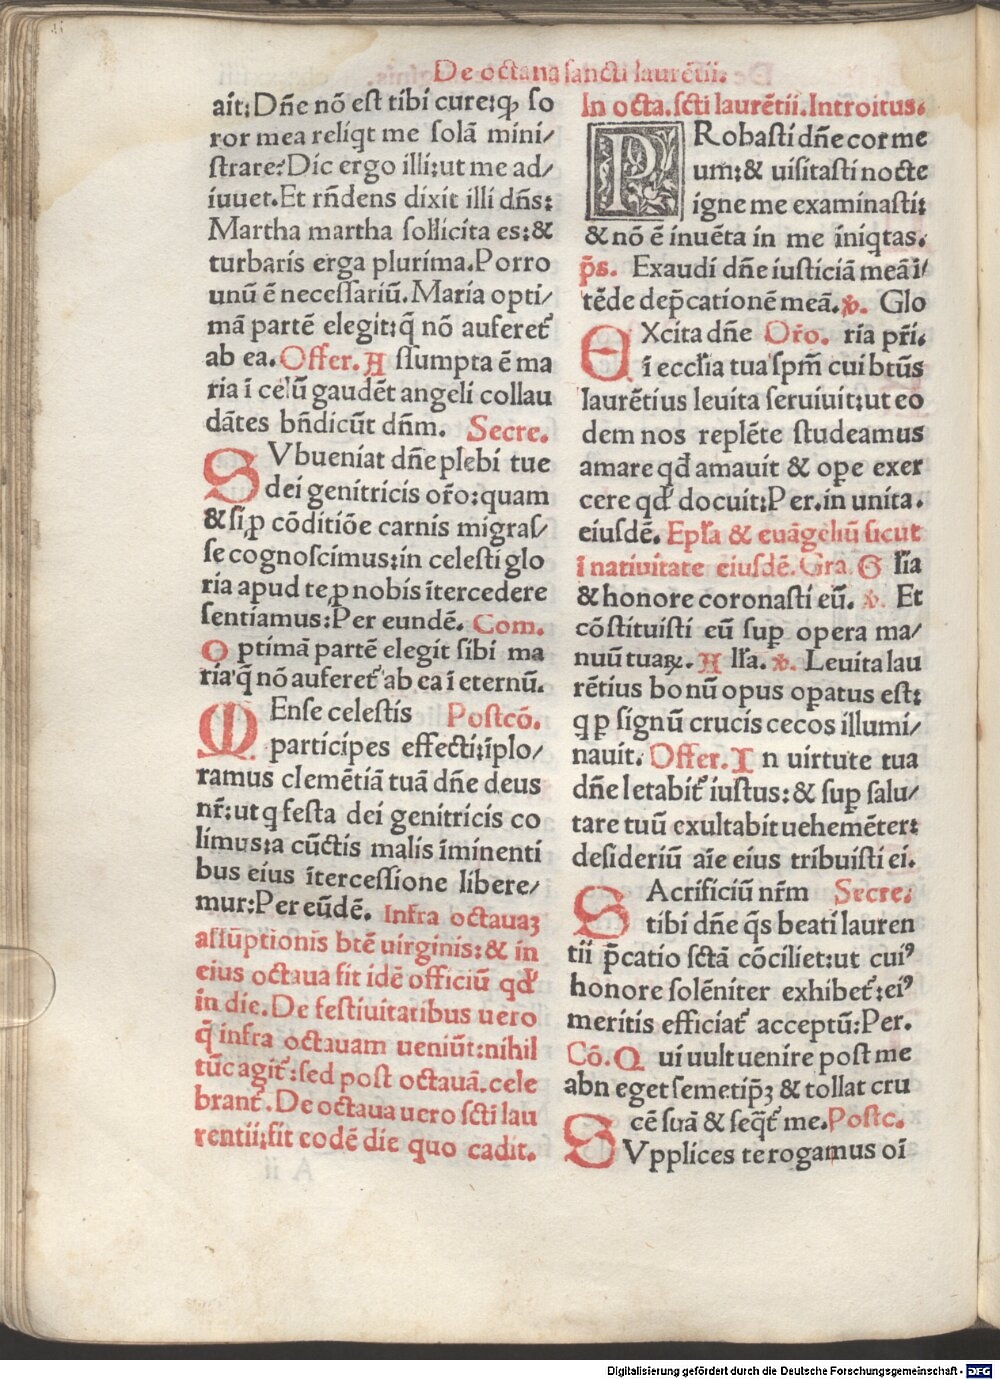 De octaua sancti laurētii.
ait: Dn̄e nō est tibi cure: ꝙ so
ror mea reliq̇t me solā mini/
strare? Dic ergo illi: ut me ad/
iuuet. Et rn̄dens dixit illi dn̄s:
Martha martha sollicita es: &
turbaris erga plurima. Porro
unū ē necessariū. Maria opti/
mā partē elegit: q̄ nō auferet᷑
ab ea. Offer. A ssumpta ē ma
ria ī celū gaudēt angeli collau
dātes bn̄dicūt dn̄m. Secre.
SVbueniat dn̄e plebi tue
dei genitricis or̄o: quam
& si ꝓ cōditiōe carnis migras/
se cognoscimus: in celesti glo
ria apud te ꝓ nobis ītercedere
sentiamus: Per eundē. Com.
O ptimā partē elegit sibi ma
ria q̄ nō auferet᷑ ab ea ī eternū.
MEnse celestis Postcō.
participes effecti: īplo/
ramus clemētiā tuā dn̄e deus
nr̄: ut q festa dei genitricis co
limus: a cūctis malis īminenti
bus eius ītercessione libere/
mur: Per eūdē. Infra octauaꝫ
assūptionis btē uirginis: & in
eius octaua fit idē officiū qđ
in die. De festiuitatibus uero
q̄ infra octauam ueniūt: nihil
tūc agit᷑: sed post octauā. cele
brant᷑. De octaua uero scti lau
rentii: fit eodē die quo cadit.
In octa. scti laurētii. Introitus.
PRobasti dn̄e cor me
um: & uisitasti nocte
igne me examinasti:
& nō ē inuēta in me iniq̇tas.
p̄s. Exaudi dn̄e iusticiā meā ī/
tēde dep̄cationē meā. ℣. Glo
EXcita dn̄e Or̄o. ria pr̄i.
ī eccl̄ia tua spm̄ cui btūs
laurētius leuita seruiuit: ut eo
dem nos replēte studeamus
amare qđ amauit & oꝑe exer
cere qđ docuit: Per. in unita.
eiusdē. Epl̄a & euāgeliū sicut
ī natiuitate eiusdē. Gra. G l̄ia
& honore coronasti eū. ℣. Et
cōstituisti eū suꝑ opera ma/
nuū tuaꝝ. A ll̄a. ℣. Leuita lau
rētius bonū opus oꝑatus est:
q ꝑ signū crucis cecos illumi/
nauit. Offer. I n uirtute tua
dn̄e letabit᷑ iustus: & suꝑ salu/
tare tuū exultabit uehemēter:
desideriū aīe eius tribuisti ei.
SAcrificiū nr̄m Secre.
tibi dn̄e q̄s beati lauren
tii p̄catio sctā cōciliet: ut cuiꝰ
honore solēniter exhibet᷑: eiꝰ
meritis efficiat᷑ acceptū: Per.
Cō. Q ui uult uenire post me
abneget semetip̄ꝫ & tollat cru
cē suā & seq̄t᷑ me. Postc.
SVpplices te rogamus oī
A ii
Digitalisierung gefördert durch die Deutsche Forschungsgemeinschaft - DFG